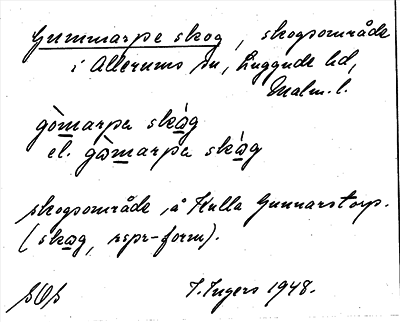 Gummarpe skog, skogsområde
i Allerums sn, Luggude hd,
Malm. l.
gòmarpa skåg
el. gòmarpa skåg
skogsområde å Kulla Gunnarstorp.
(skog, rspr-form).
I. Ingers 1948.